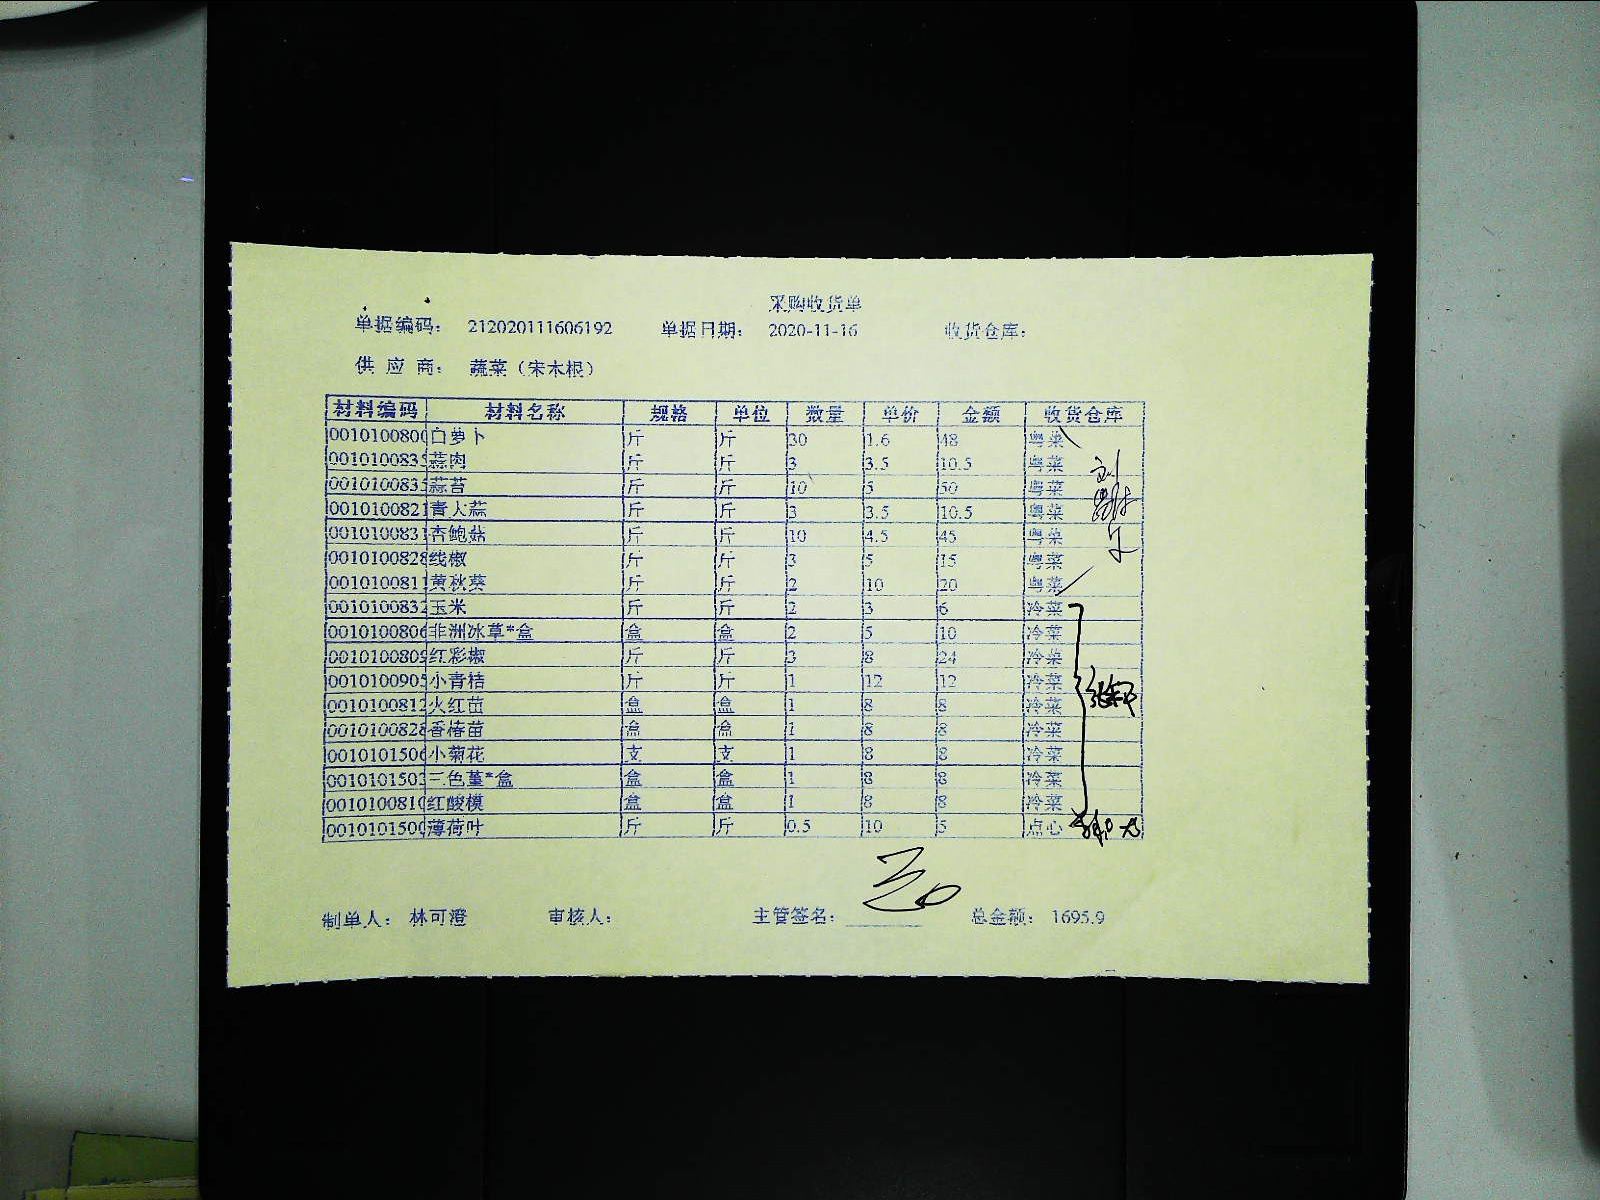 采购收货单
单据编码： 212020111606192 单据日期： 2020-11-16 收货仓库：
供 应 商： 蔬菜（宋木根）
材料编码 材料名称 规格 单位 数量 单价 金额 收货仓库
0010100800 白萝卜 斤 斤 30 1.6 48 粤菜
0010100835 蒜肉 斤 斤 3 3.5 10.5 粤菜
0010100835 蒜苔 斤 斤 10 5 50 粤菜
0010100821 青大蒜 斤 斤 3 3.5 10.5 粤菜
0010100831 杏鲍菇 斤 斤 10 4.5 45 粤菜
0010100828 线椒 斤 斤 3 5 15 粤菜
0010100811 黄秋葵 斤 斤 2 10 20 粤菜
0010100832 玉米 斤 斤 2 3 6 冷菜
0010100806 非洲冰草*盒 盒 盒 2 5 10 冷菜
0010100809 红彩椒 斤 斤 3 8 24 冷菜
0010100905 小青桔 斤 斤 1 12 12 冷菜
0010100812 火红苗 盒 盒 1 8 8 冷菜
0010100828 香椿苗 盒 盒 1 8 8 冷菜
0010101506 小菊花 支 支 1 8 8 冷菜
0010101503 三色堇*盒 盒 盒 1 8 8 冷菜
0010100810 红酸模 盒 盒 1 8 8 冷菜
0010101500 薄荷叶 斤 斤 0.5 10 5 点心
制单人： 林可澄 审核人： 主管签名： 总金额： 1695.9